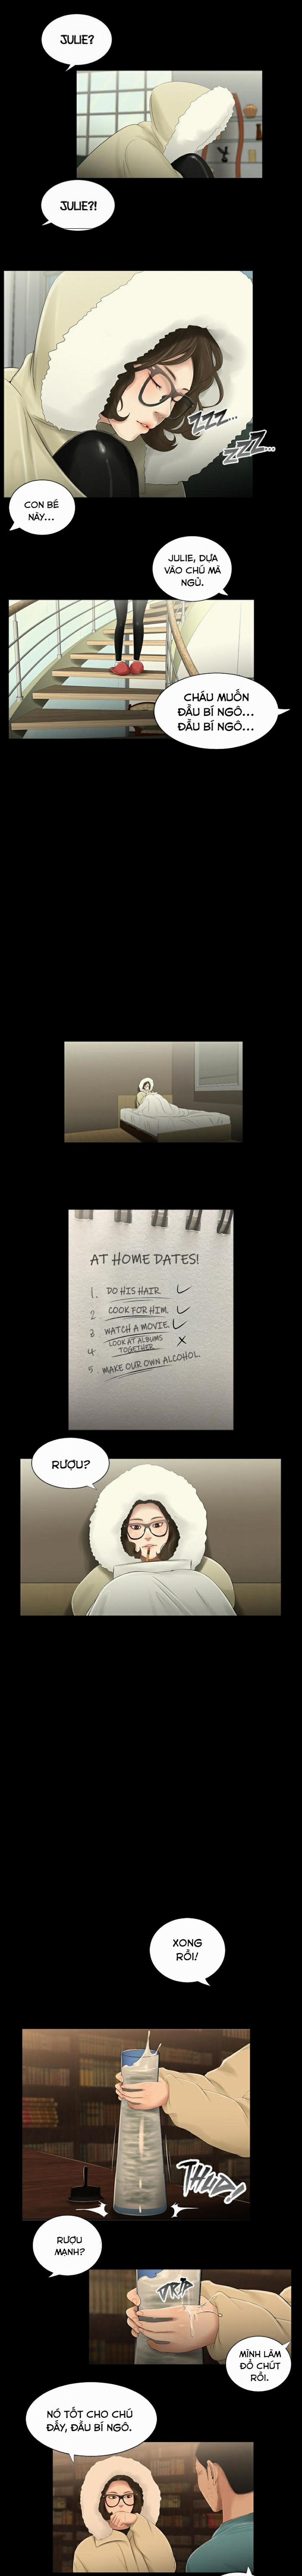 JULIE?
JULIE?!
ZZZ...
ZZZ...
CON BÉ
NÀY...
JULIE, DỰA
VÀO CHÚ MÀ
NGỦ.
CHÁU MUỐN
ĐẦU BÍ NGÔ...
ĐẦU BÍ NGÔ...
AT HOME DATES!
1. DO HIS HAIR.
2 COOK FOR HIM.
3 WATCH A MOVIE.
4. LOOK AT ALBUMS
TOGETHER
5. MAKE OUR OWN ALCOHOL.
RƯỢU?
XONG
RỒI!
THUD!
RƯỢU
MẠNH?
DRIP
MÌNH LÀM
ĐỔ CHÚT
RỒI.
NÓ TỐT CHO CHÚ
ĐẤY, ĐẦU BÍ NGÔ.